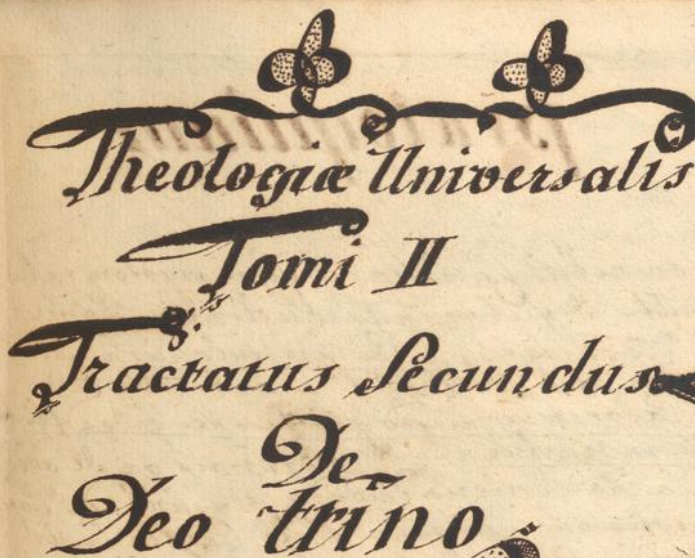 Theologiæ Universalis
Tomi II
Tractatus Secundus
De
Deo trino